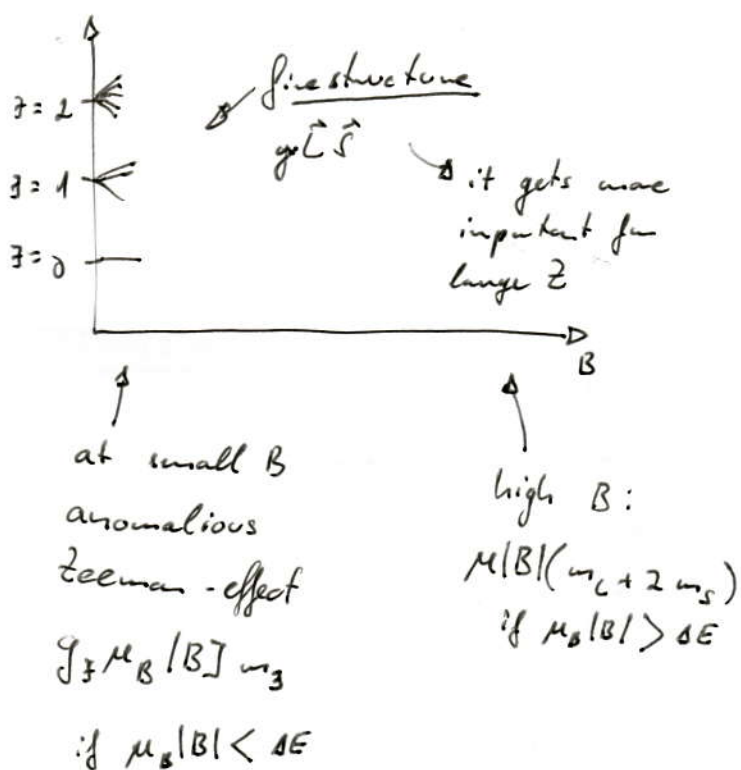 finestructure
J = 2
L⃗ S⃗
J = 1
it gets more
important for
large Z
J = 0
B
at small B
anomalious
Zeeman - effect
g_J μ_B |B| m_J
if μ_B |B| < ΔE
high B :
μ|B|(m_L + 2 m_S)
if μ_B|B| > ΔE